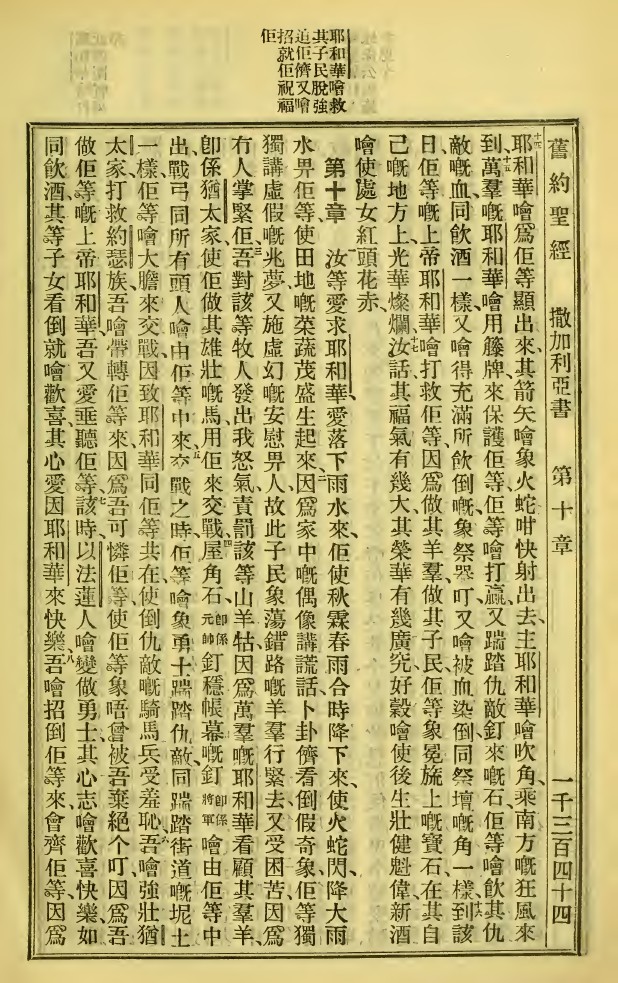 耶和華噲救
其子民脫強
迫佢儕又噲
招就佢祝福
佢
舊約聖經 撒加利亞書 第十章 一千三百四十四
十四耶和華噲爲佢等顯出來、其箭矢噲象火蛇咁快射出去、主耶和華噲吹角、乘南方嘅狂風來
到、十五萬羣嘅耶和華噲用籐牌來保護佢等、佢等噲打贏、又踹踏仇敵釘來嘅石、佢等噲飲其仇
敵嘅血、同飲酒一樣、又噲得充滿所飲倒嘅象祭器叮、又噲被血染倒同祭壇嘅角一樣、十六到該
日佢等嘅上帝耶和華噲打救佢等、因爲做其羊羣做其子民、佢等象冕旒上嘅寶石、在其自
己嘅地方上光華燦爛、十七汝話其福氣有幾大、其榮華有幾廣、究好穀噲使後生壯健魁偉、新酒
噲使處女紅頭花赤、
第十章 一汝等愛求耶和華、愛落下雨水來、佢使秋霖春雨合時降下來、使火蛇閃、降大雨
水畀佢等、使田地嘅菜蔬茂盛生起來、二因爲家中嘅偶像講謊話、卜卦儕看倒假奇象、佢等獨
獨講虛假嘅兆夢、又施虛幻嘅安慰畀人、故此子民象蕩錯路嘅羊羣行緊去、又受困苦、因爲
冇人掌緊佢、三吾對該等牧人發出我怒氣、責罰該等山羊牯、因爲萬羣嘅耶和華看顧其羣羊、
卽係猶太家、使佢做其雄壯嘅馬、用佢來交戰、四屋角石卽係元帥釘穩帳幕嘅釘卽係將軍噲由佢等中
出、戰弓同所有頭人噲由佢等中來、五交戰之時、佢等噲象勇士踹踏仇敵、同踹踏街道嘅坭土
一樣、佢等噲大膽來交戰、因致耶和華同佢等共在、使倒仇敵嘅騎馬兵受羞恥、六吾噲強壯猶
太家、打救約瑟族、吾噲帶轉佢等來、因爲吾可憐佢等、使佢等象唔曾被吾棄絕个叮、因爲吾
做佢等嘅上帝耶和華、吾又愛垂聽佢等、七該時以法蓮人噲變做勇士、其心志噲歡喜快樂、如
同飲酒、其等子女看倒就噲歡喜、其心愛因耶和華來快樂、八吾噲招倒佢等來會齊佢等、因爲